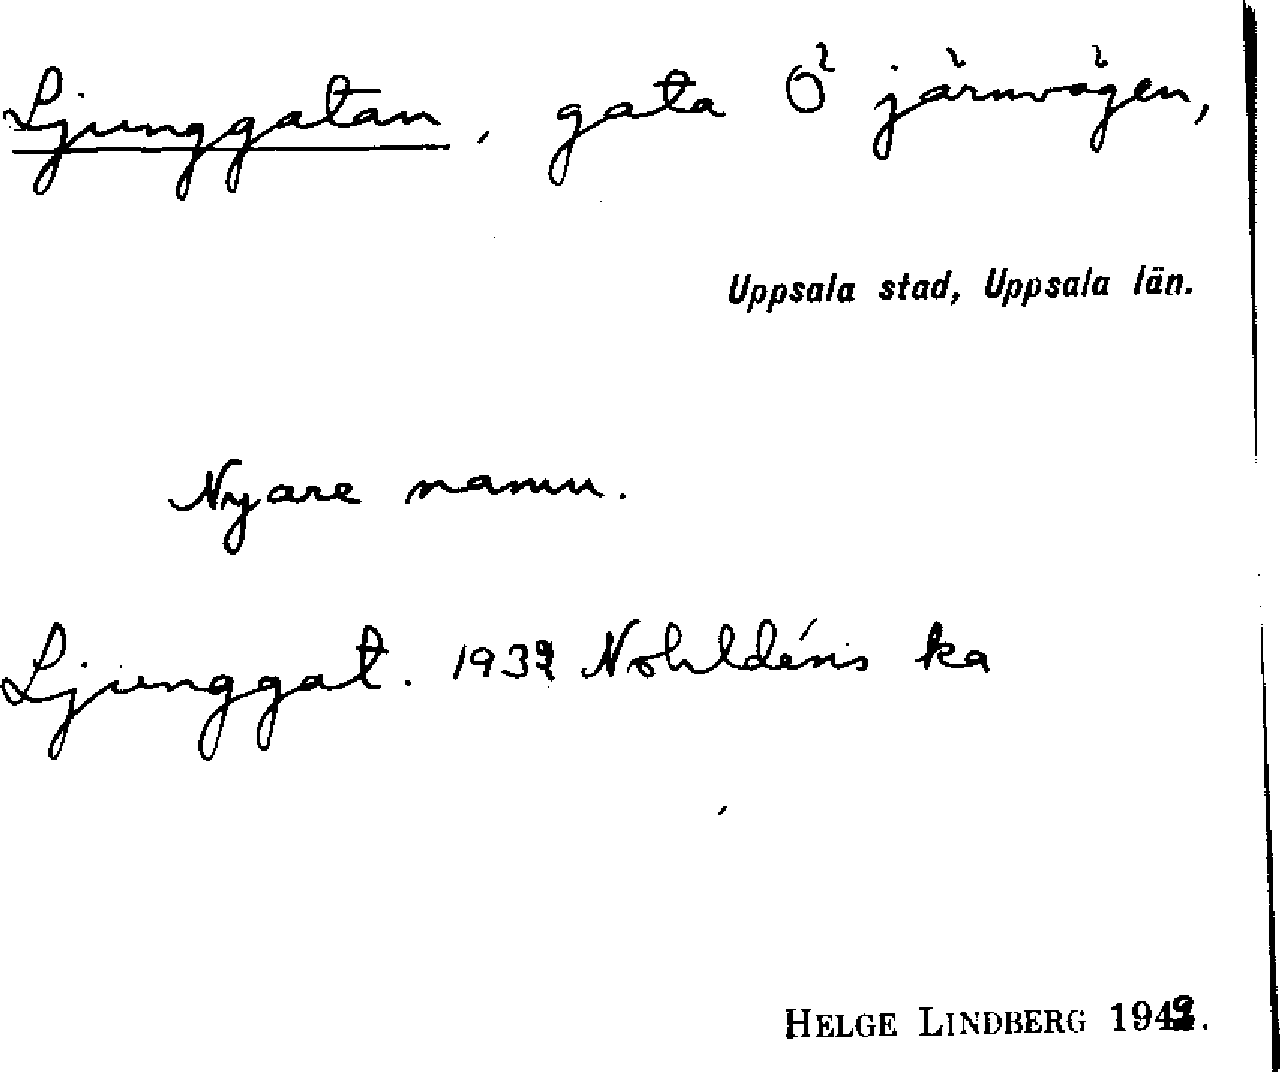 Ljunggatan, gata Ö järnvägen,
Uppsala stad, Uppsala län.
Nyare namn.
Ljunggat. 1939 Nohldéns ka
HELGE LINDBERG 1949.